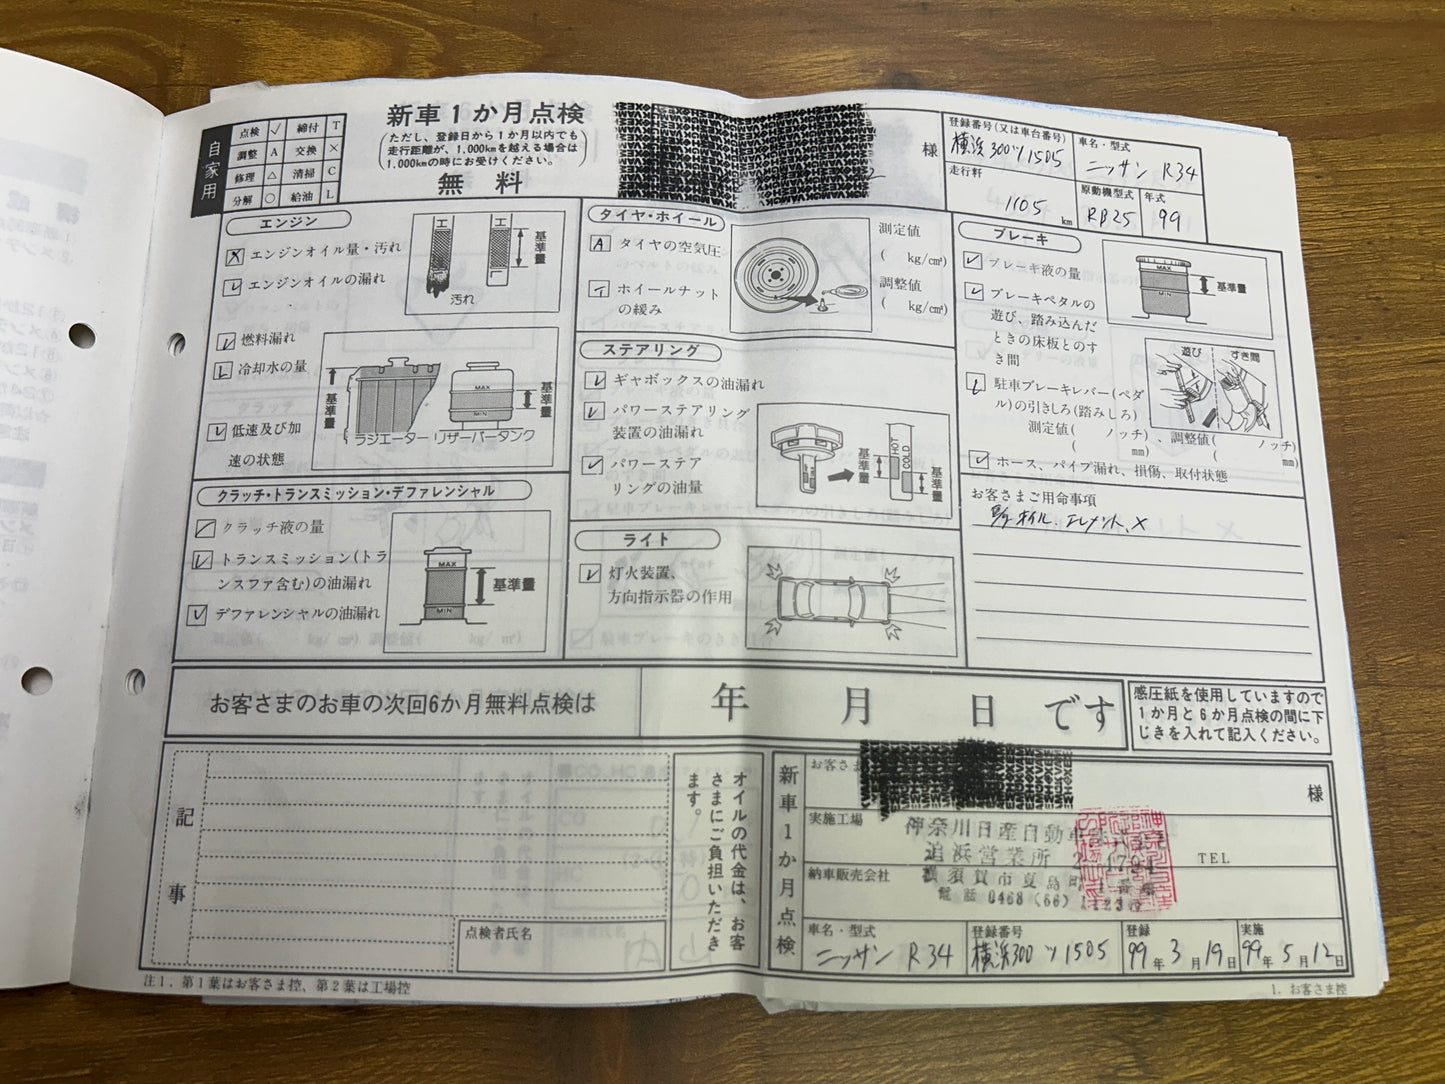 自家用
点検 ✓ 締付 T
調整 A 交換 ×
修理 △ 清掃 C
分解 ○ 給油 L
新車1か月点検
(ただし、登録日から1か月以内でも
走行距離が、1,000kmを越える場合は
1,000kmの時にお受けください。)
無料
様
登録番号(又は車台番号)
横浜300ツ1505
車名・型式
ニッサン R34
走行粁
1105 km
原動機型式
RB25
年式
99
エンジン
エンジンオイル量・汚れ
エンジンオイルの漏れ
工
工
L
基準量
汚れ
燃料漏れ
冷却水の量
低速及び加
速の状態
基準量
ラジエーター
MAX
MIN
リザーバータンク
基準量
クラッチ・トランスミッション・デファレンシャル
クラッチ液の量
トランスミッション(トラ
ンスファ含む)の油漏れ
デファレンシャルの油漏れ
MAX
MIN
基準量
タイヤ・ホイール
A タイヤの空気圧
T ホイールナット
の緩み
測定値
( kg/cm²)
調整値
( kg/cm²)
ステアリング
ギャボックスの油漏れ
パワーステアリング
装置の油漏れ
パワーステア
リングの油量
基準量
HOT
COLD
基準量
ライト
灯火装置、
方向指示器の作用
ブレーキ
ブレーキ液の量
ブレーキペタルの
遊び、踏み込んだ
ときの床板とのす
き間
MAX
MIN
基準量
遊び
すき間
駐車ブレーキレバー(ペダ
ル)の引きしろ(踏みしろ)
測定値( ノッチ)、調整値( ノッチ)
( mm) ( mm)
ホース、パイプ漏れ、損傷、取付状態
お客さまご用命事項
オイル、エレメント、×
お客さまのお車の次回6か月無料点検は
年 月 日 です
感圧紙を使用していますので
1か月と6か月点検の間に下
じきを入れて記入ください。
記事
点検者氏名
オイルの代金は、お客
さまにご負担いただき
ます。
新車1か月点検
お客さま
様
実施工場
神奈川日産自動車
追浜営業所
TEL
納車販売会社
横須賀市夏島町
電話 0468 (66)
車名・型式
ニッサン R34
登録番号
横浜300ツ1505
登録
99年3月19日
実施
99年5月12日
注1.第1葉はお客さま控、第2葉は工場控
1.お客さま控